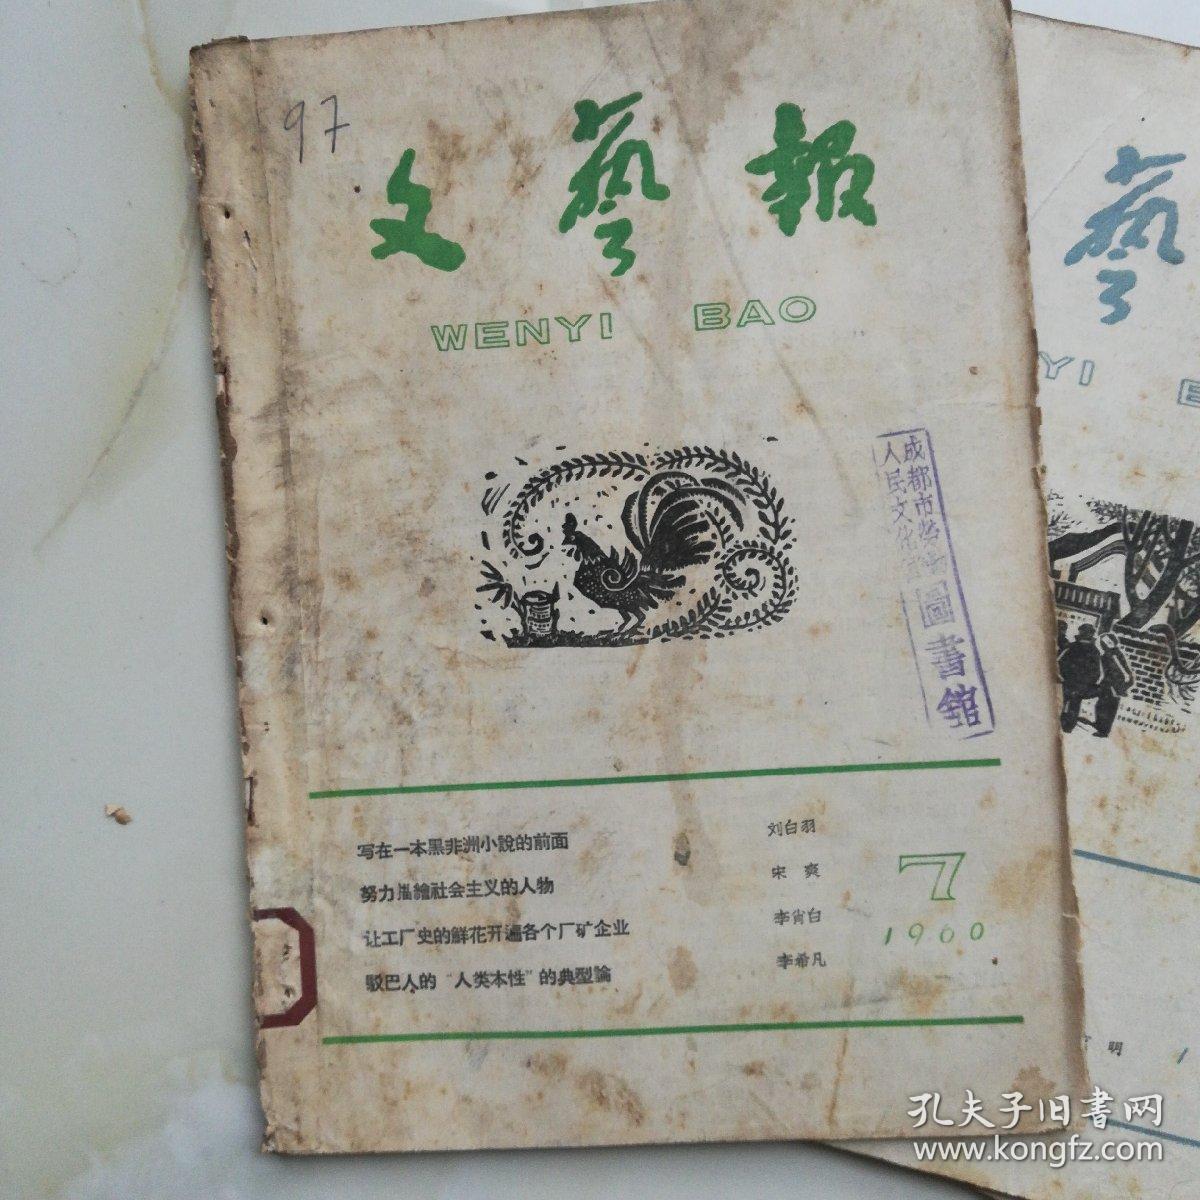 97
文藝報
WENYI BAO
成都市劳动
人民文化宫
圖書館
写在一本黑非洲小說的前面 刘白羽
努力描繪社会主义的人物 宋爽
让工厂史的鮮花开遍各个厂矿企业 李肯白
駁巴人的“人类本性”的典型論 李希凡
7
1960
藝
YI B
明
1
孔夫子旧書网
www.kongfz.com